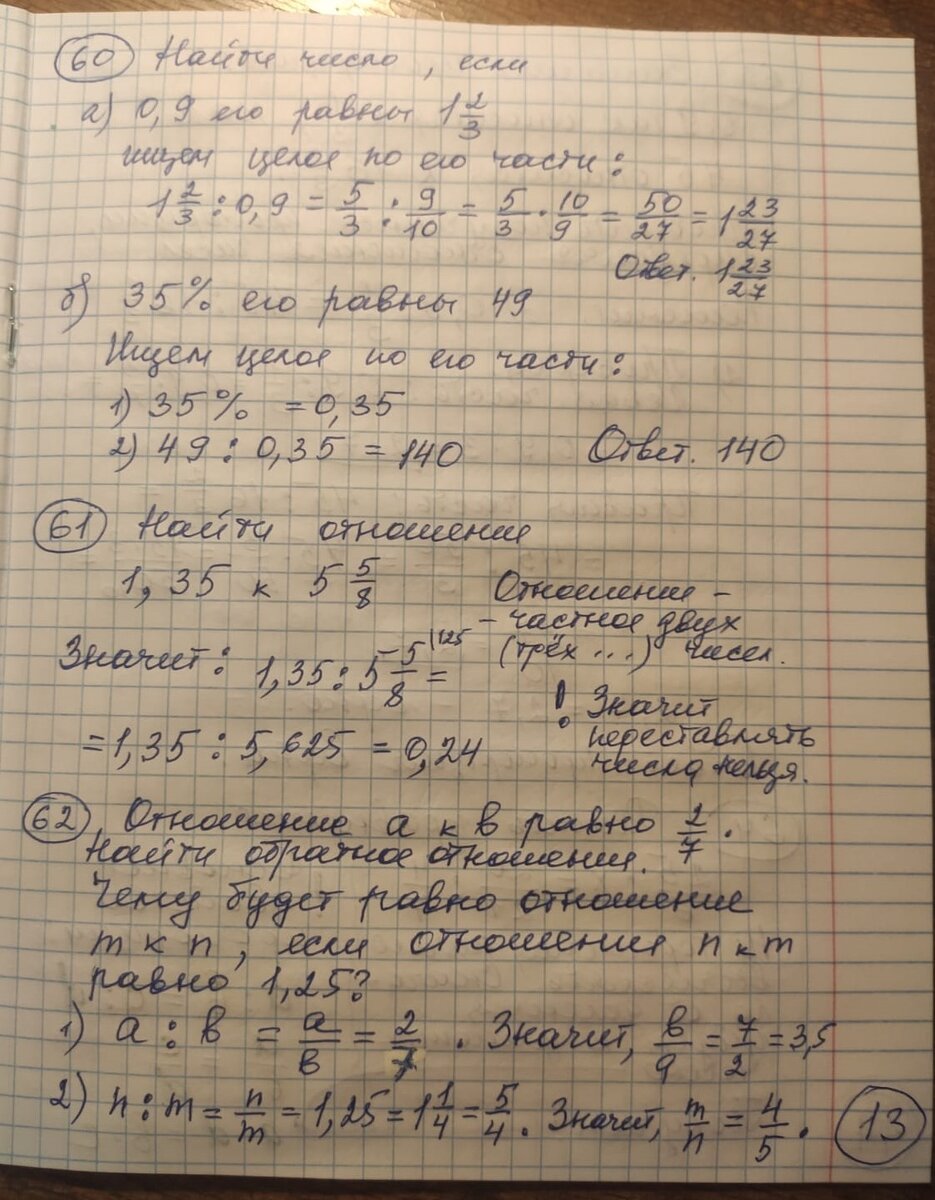 60 Найти число, если
а) 0,9 его равны 1 2/3
ищем целое по его части:
1 2/3 : 0,9 = 5/3 : 9/10 = 5/3 · 10/9 = 50/27 = 1 23/27
Ответ. 1 23/27
б) 35% его равны 49
Ищем целое по его части:
1) 35% = 0,35
2) 49 : 0,35 = 140 Ответ. 140
61 Найти отношение
1,35 к 5 5/8
Отношение –
– частное двух
(трёх ...) чисел.
Значит: 1,35 : 5 5/8 =
! Значит
переставлять
числа нельзя.
= 1,35 : 5,625 = 0,24
62. Отношение а к в равно 2/7.
Найти обратное отношение.
Чему будет равно отношение
m к n, если отношение n к m
равно 1,25?
1) а : в = а/в = 2/7. Значит, в/а = 7/2 = 3,5
2) n : m = n/m = 1,25 = 1 1/4 = 5/4. Значит, m/n = 4/5.
13